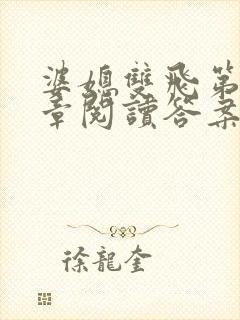 婆媳雙飛第
章閱讀答案
徐龍奎